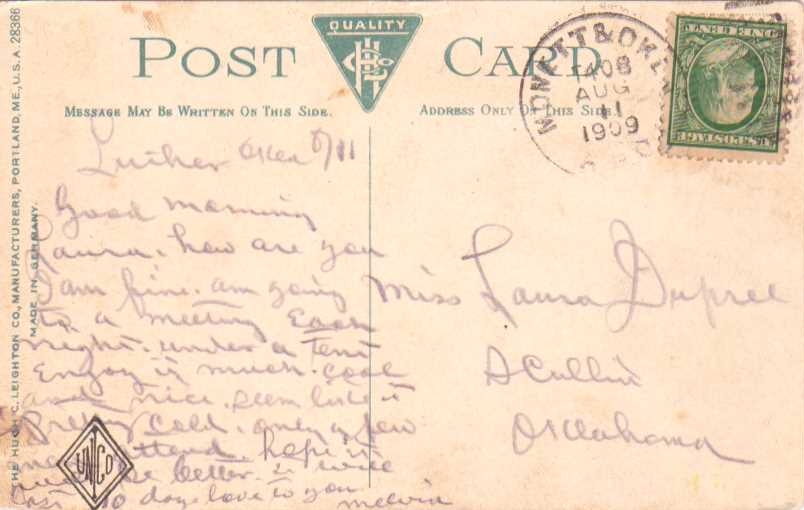 QUALITY
POST CARD
MESSAGE MAY BE WRITTEN ON THIS SIDE.
ADDRESS ONLY ON THIS SIDE.
THE HUGH C. LEIGHTON CO., MANUFACTURERS, PORTLAND, ME., U.S.A. 28366
MADE IN GERMANY.
MONETT & OKLA
AUG
11
1909
U.S. POSTAGE
Luther Okla 8/11
Good morning
Laura. how are you
I am fine. am going
to a meeting Each
night. under a tent
Enjoy it much. cool
and nice. seem like it
Pretty cold. only a few
attend. hope it
be better. it will
last 10 days love to you
Melvin
Miss Laura Dupree
Scullin
Oklahoma
UNCO